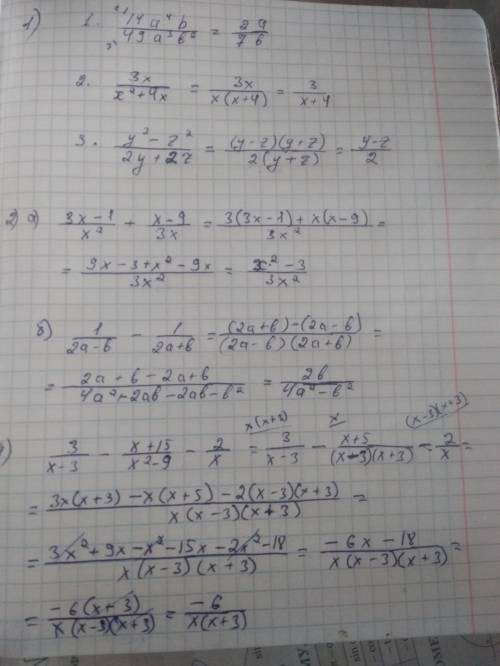 1) 1. 14a⁴b / 49a³b² = 2a / 7b
2. 3x / x²+4x = 3x / x(x+4) = 3 / x+4
3. y²-z² / 2y+2z = (y-z)(y+z) / 2(y+z) = y-z / 2
2) а) 3x-1 / x² + x-9 / 3x = 3(3x-1)+x(x-9) / 3x² =
= 9x-3+x²-9x / 3x² = x²-3 / 3x²
б) 1 / 2a-b - 1 / 2a+b = (2a+b)-(2a-b) / (2a-b)(2a+b) =
= 2a+b-2a+b / 4a²+2ab-2ab-b² = 2b / 4a²-b²
x(x+3) x (x-3)(x+3)
3 / x-3 - x+15 / x²-9 - 2 / x = 3 / x-3 - x+5 / (x-3)(x+3) - 2 / x =
= 3x(x+3)-x(x+5)-2(x-3)(x+3) / x(x-3)(x+3) =
= 3x²+9x-x²-15x-2x²-18 / x(x-3)(x+3) = -6x-18 / x(x-3)(x+3) =
= -6(x+3) / x(x-3)(x+3) = -6 / x(x+3)